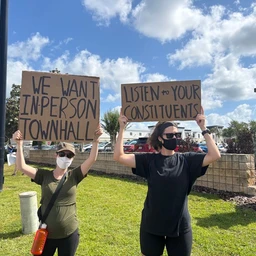 WE WANT
INPERSON
TOWNHALL
LISTEN TO YOUR
CONSTITUENTS